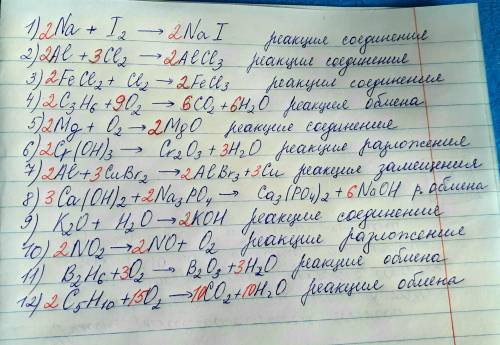 1) 2Na + I₂ → 2NaI реакция соединения
2) 2Al + 3Cl₂ → 2AlCl₃ реакция соединения
3) 2FeCl₂ + Cl₂ → 2FeCl₃ реакция соединения
4) 2C₃H₆ + 9O₂ → 6CO₂ + 6H₂O реакция обмена
5) 2Mg + O₂ → 2MgO реакция соединения
6) 2Cr(OH)₃ → Cr₂O₃ + 3H₂O реакция разложения
7) 2Al + 3CuBr₂ → 2AlBr₃ + 3Cu реакция замещения
8) 3Ca(OH)₂ + 2Na₃PO₄ → Ca₃(PO₄)₂ + 6NaOH р. обмена
9) K₂O + H₂O → 2KOH реакция соединения
10) 2NO₂ → 2NO + O₂ реакция разложения
11) B₂H₆ + 3O₂ → B₂O₃ + 3H₂O реакция обмена
12) 2C₅H₁₀ + 15O₂ → 10CO₂ + 10H₂O реакция обмена